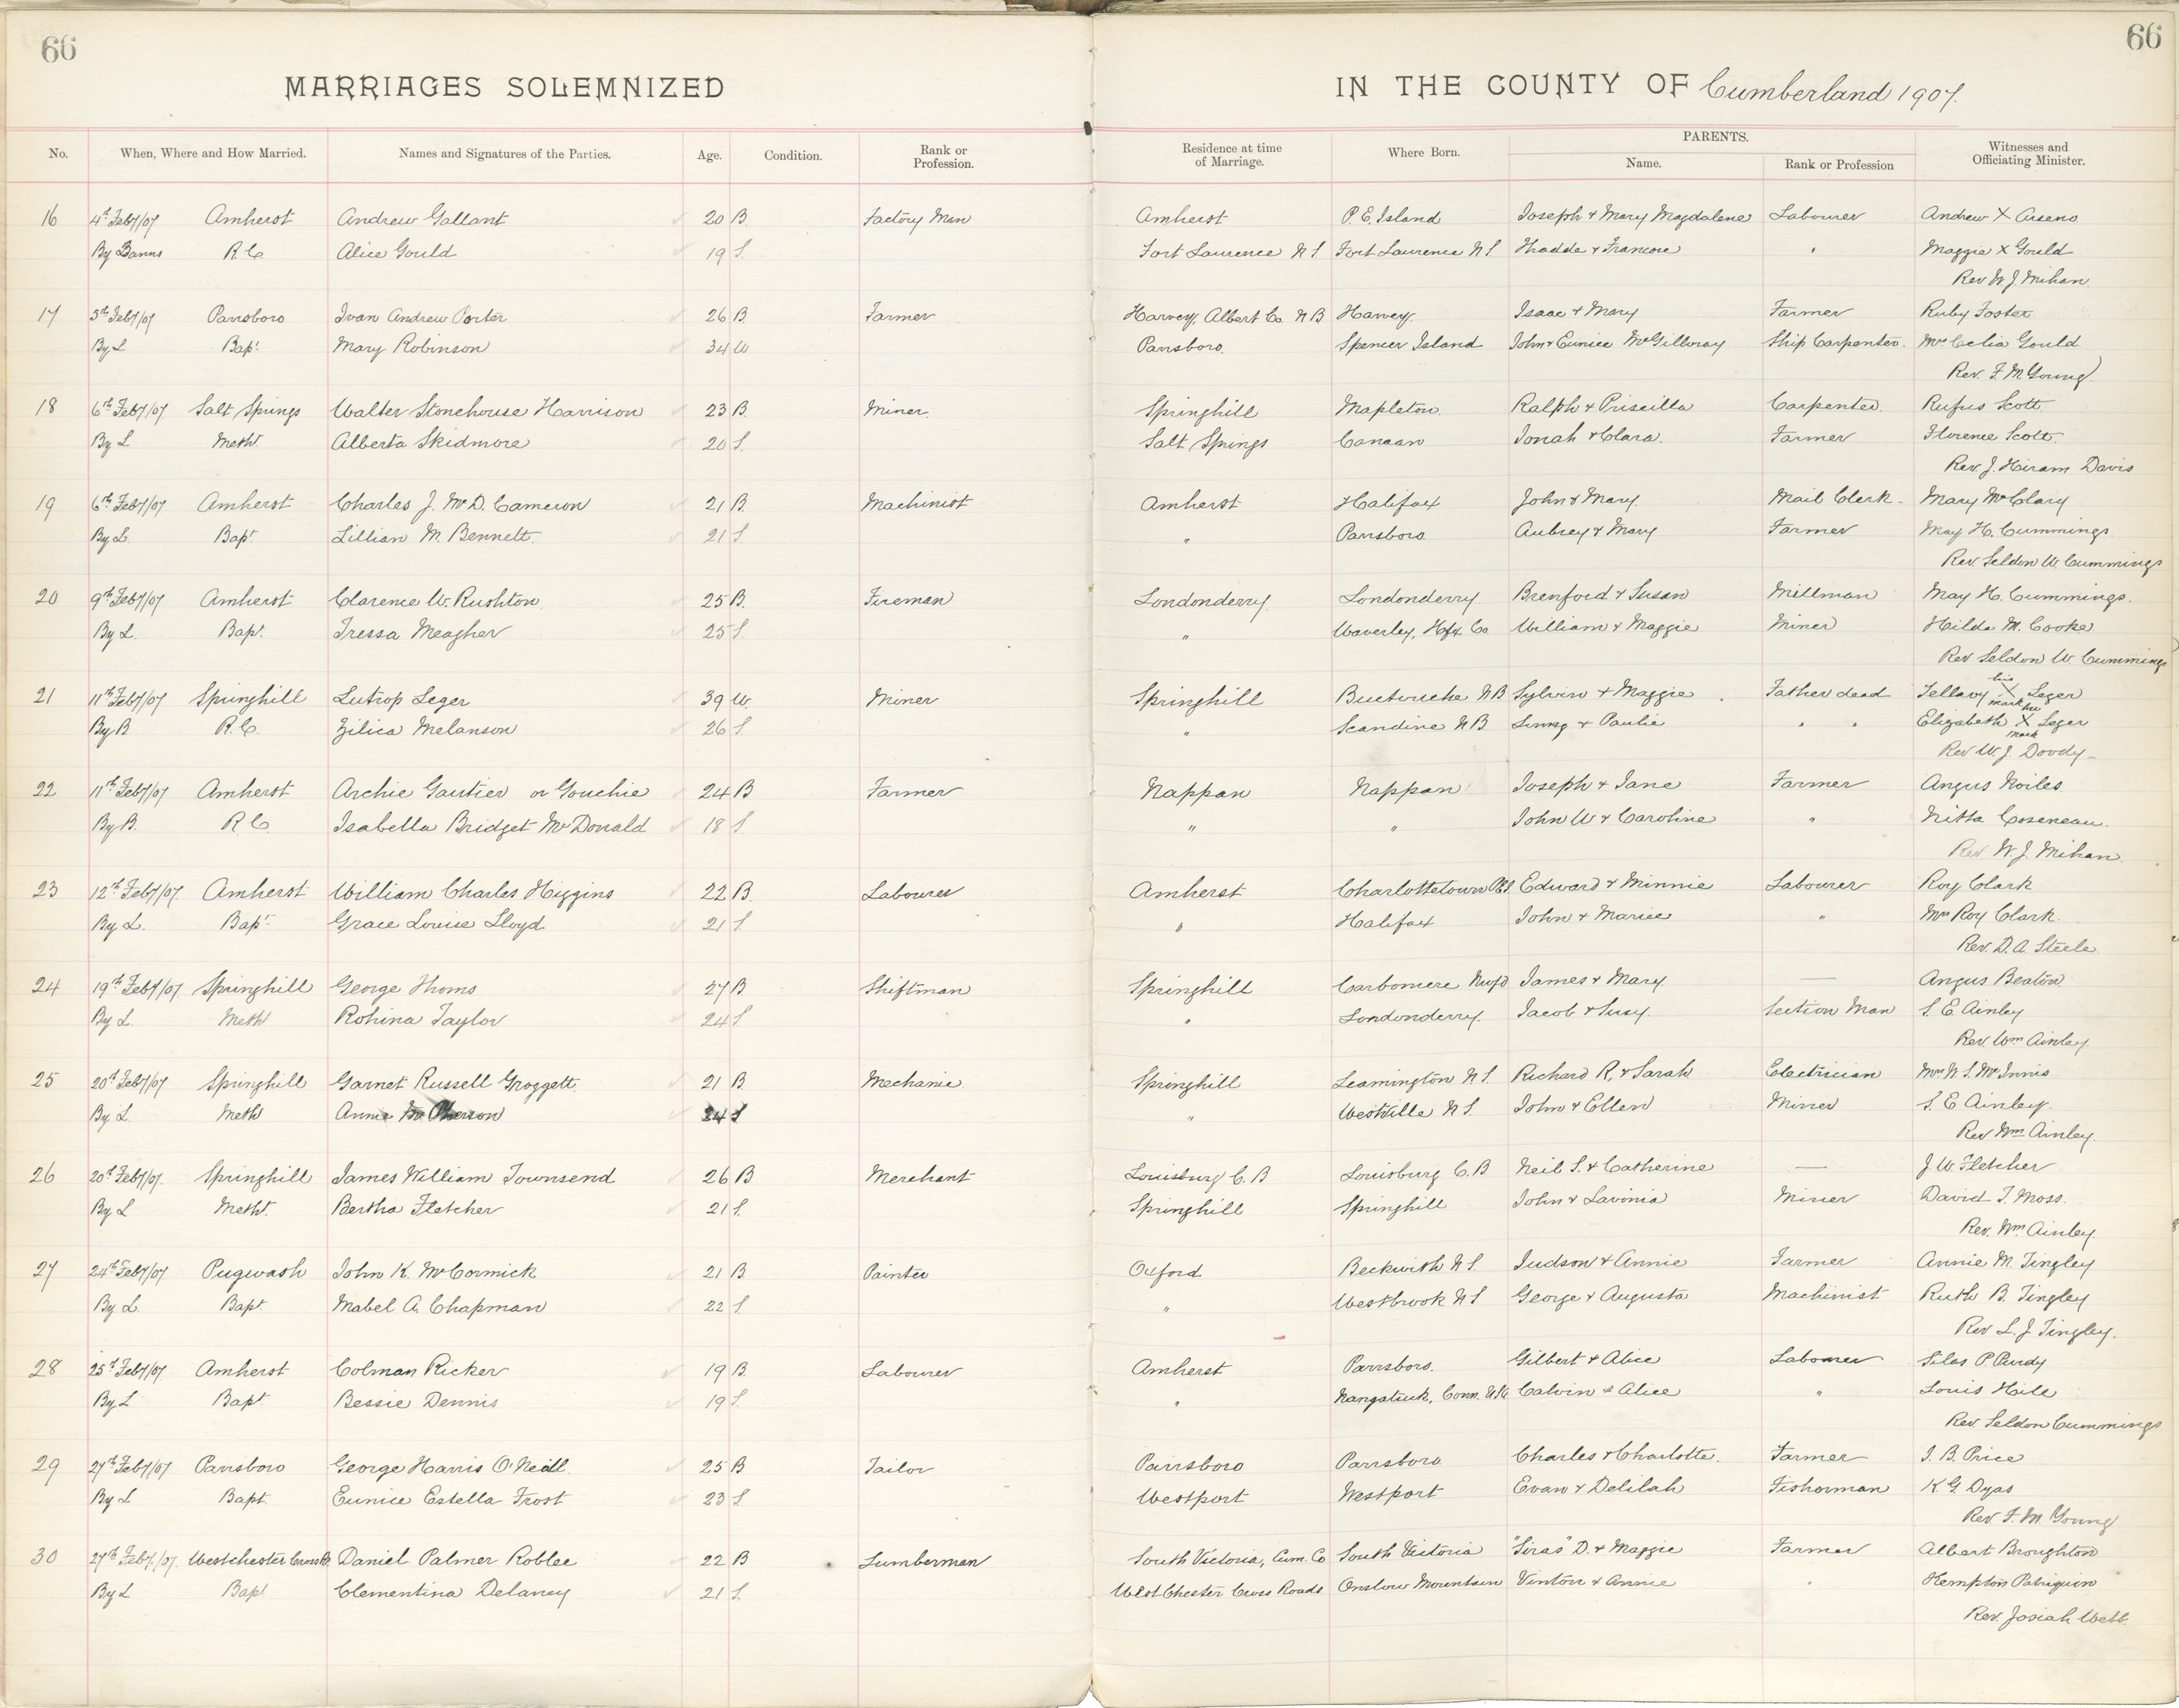 66
66
MARRIAGES SOLEMNIZED IN THE COUNTY OF Cumberland 1907.
No. When, Where and How Married. Names and Signatures of the Parties. Age. Condition. Rank or Profession. Residence at time of Marriage. Where Born. PARENTS. Name. Rank or Profession Witnesses and Officiating Minister.
16 4th Feby/07 Amherst Andrew Gallant 20 B. Factory Man Amherst P.E. Island Joseph & Mary Magdalene Labourer Andrew X Arseno
By Banns R.C. Alice Gould 19 S. Fort Laurence N S Fort Laurence N S. Thadde & " Maggie X Gould
Rev W J Mihan
17 5th Feby/07 Parrsboro Ivan Andrew Porter 26 B. Farmer Harvey, Albert Co. N B Harvey. Isaac & Mary Farmer Ruby Foster
By L Bapt. Mary Robinson 34 W Parrsboro. Spencer Island John & Eunice McGillvray Ship Carpenter. Mrs Celia Gould
Rev. F. M. Young
18 6th Feby/07 Salt Springs Walter Stonehouse Harrison 23 B. Miner. Springhill Mapleton. Ralph & Priscilla Carpenter. Rufus Scott
By L Meth. Alberta Skidmore 20 S. Salt Springs Canaan Jonah & Clara. Farmer Florence Scott.
Rev. J. Hiram Davis
19 6th Feby/07 Amherst Charles J. McD. Cameron 21 B. Machinist Amherst Halifax John & Mary. Mail Clerk Mary McClary
By L. Bapt. Lillian M. Bennett. 21 S. " Parrsboro Aubrey & Mary Farmer May H. Cummings.
Rev. Seldon W. Cummings
20 9th Feby/07 Amherst Clarence W. Rushton 25 B. Fireman Londonderry Londonderry Brenford & Susan Millman May H. Cummings.
By L. Bapt. Tressa Meagher 25 S. " Waverley, Hfx Co William & Maggie Miner Hilda M. Cooke
Rev Seldon W. Cummings
21 11th Feby/07 Springhill Lutrop Leger 39 W. Miner Springhill Buctouche N B Sylvin & Maggie Father dead Tellavy his X mark Leger
By B R.C. Zilica Melanson 26 S " Scandine N B & Paulie " " Elizabeth her X mark Leger
Rev W. J. Doody
22 11th Feby/07 Amherst Archie Gautier or Gouchie 24 B Farmer Nappan Nappan Joseph & Jane Farmer Angus Noiles
By B. R C Isabella Bridget McDonald 18 S. " " John W & Caroline " Nitta Coseneau.
Rev W. J. Mihan
23 12th Feby/07. Amherst William Charles Higgins 22 B. Labourer Amherst Charlottetown P.E.I. Edward & Minnie Labourer Roy Clark
By L. Bapt. Grace Louise Lloyd 21 S " Halifax John & Mariee " Mrs Roy Clark.
Rev. D. A. Steele
24 19th Feby/07. Springhill George Thoms 27 B Shiftman Springhill Carbonere Nwfd James & Mary — Angus Beaton
By L. Meth Rohina Taylor 24 S " Londonderry. Jacob & Susy. Section Man S. E. Ainley
Rev. Wm Ainley.
25 20th Feby/07 Springhill Garnet Russell Groggett. 21 B Mechanic Springhill Leamington N S. Richard R. & Sarah Electrician Mrs N. S. McInnis
By L. Meth Annie McPherson 24 S " Westville N S. John & Ellen Miner S. E Ainley.
Rev Wm Ainley
26 20th Feby/07. Springhill James William Townsend 26 B Merchant Louisburg C. B Louisburg C. B Neil S. & Catherine — J W Fletcher
By L Meth. Bertha Fletcher 21 S. Springhill Springhill John & Lavinia Miner David T. Moss.
Rev. Wm Ainley
27 24th Feby/07 Pugwash John K. McCormick 21 B. Painter Oxford Beckwith N S. Judson & Annie Farmer Annie M. Tingley
By L. Bapt Mabel A. Chapman 22 S. " Westbrook N S George & Augusta Machinist Ruth B. Tingley
Rev L. J. Tingley.
28 25th Feby/07 Amherst Colman Ricker 19 B. Labourer Amherst Parrsboro. Gilbert & Alice Labourer Silas P Purdy
By L Bapt Bessie Dennis 19 S. " Nangatuck, Conn. Calvin & Alice " Louis Hill
Rev Seldon Cummings
29 27th Feby/07 Parrsboro George Harris O'Neill. 25 B Tailor Parrsboro Parrsboro Charles & Charlotte. Farmer J. B. Price
By L Bapt. Eunice Estella Frost 23 S Westport Westport Evan & Delilah Fisherman K. G. Dyas
Rev F. M. Young
30 27th Feby/07. Westchester Cross R. Daniel Palmer Roblee 22 B Lumberman South Victoria, Cum. Co South Victoria "Siras" D. & Maggie Farmer Albert Broughton
By L Bapt Clementina Delaney 21 S. West Chester Cross Roads Onslow Mountain Vinton & Annie " Hempton Patriquin
Rev. Josiah Webb.